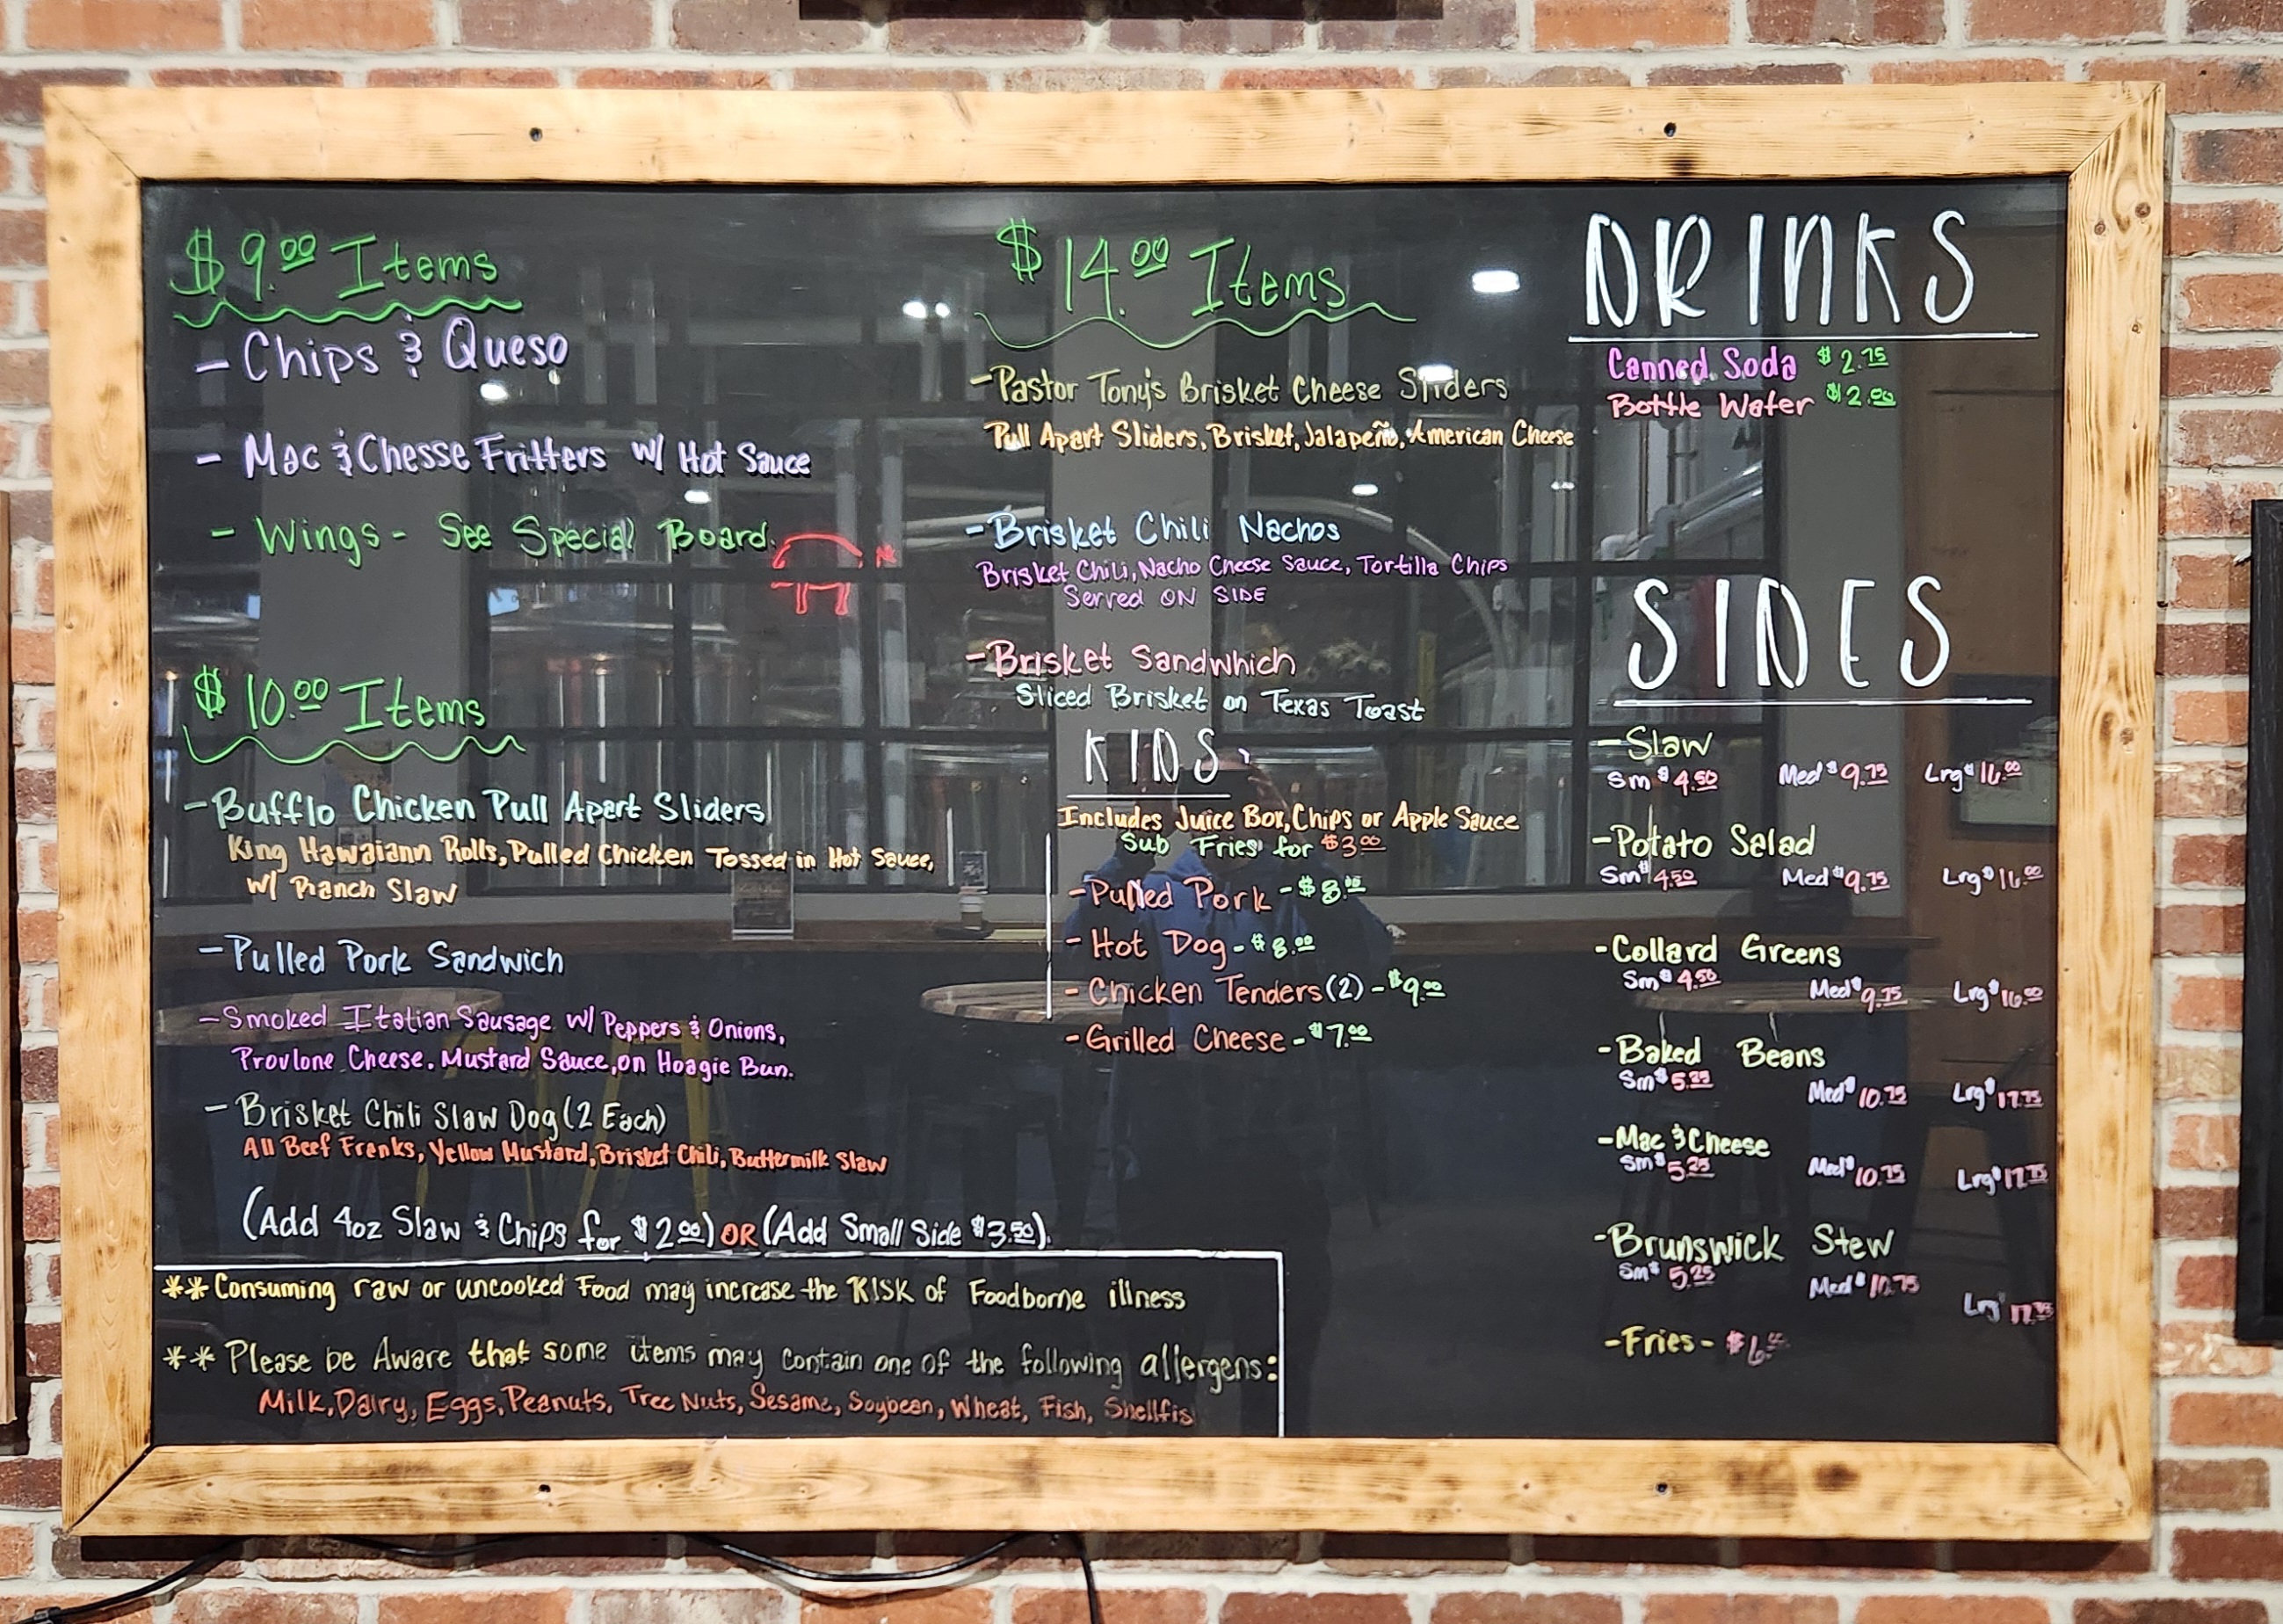 $9.00 Items
- Chips & Queso
- Mac & Chesse Fritters w/ Hot Sauce
- Wings - See Special Board.
$10.00 Items
- Bufflo Chicken Pull Apart Sliders
King Hawaiann Rolls, Pulled Chicken Tossed in Hot Sauce,
w/ Ranch Slaw
- Pulled Pork Sandwich
- Smoked Italian Sausage w/ Peppers & Onions,
Provlone Cheese. Mustard Sauce, on Hoagie Bun.
- Brisket Chili Slaw Dog (2 Each)
All Beef Franks, Yellow Mustard, Brisket Chili, Buttermilk Slaw
(Add 4oz Slaw & Chips for $2.00) OR (Add Small Side $3.50).
** Consuming raw or uncooked Food may increase the RISK of Foodborne illness
** Please be Aware that some items may contain one of the following allergens:
Milk, Dairy, Eggs, Peanuts, Tree Nuts, Sesame, Soybean, Wheat, Fish, Shellfis
$14.00 Items
- Pastor Tony's Brisket Cheese Sliders
Pull Apart Sliders, Brisket, Jalapeño, American Cheese
- Brisket Chili Nachos
Brisket Chili, Nacho Cheese Sauce, Tortilla Chips
Served ON SIDE
- Brisket Sandwhich
Sliced Brisket on Texas Toast
KIDS
Includes Juice Box, Chips or Apple Sauce
Sub Fries for $3.00
- Pulled Pork - $8.00
- Hot Dog - $8.00
- Chicken Tenders (2) - $9.00
- Grilled Cheese - $7.00
DRINKS
Canned Soda $2.75
Bottle Water $2.00
SIDES
- Slaw
Sm $4.50 Med $9.75 Lrg $16.00
- Potato Salad
Sm $4.50 Med $9.75 Lrg $16.00
- Collard Greens
Sm $4.50 Med $9.75 Lrg $16.00
- Baked Beans
Sm $5.25 Med $10.75 Lrg $17.75
- Mac & Cheese
Sm $5.25 Med $10.75 Lrg $17.75
- Brunswick Stew
Sm $5.25 Med $10.75 Lrg $17.75
- Fries - $6.00